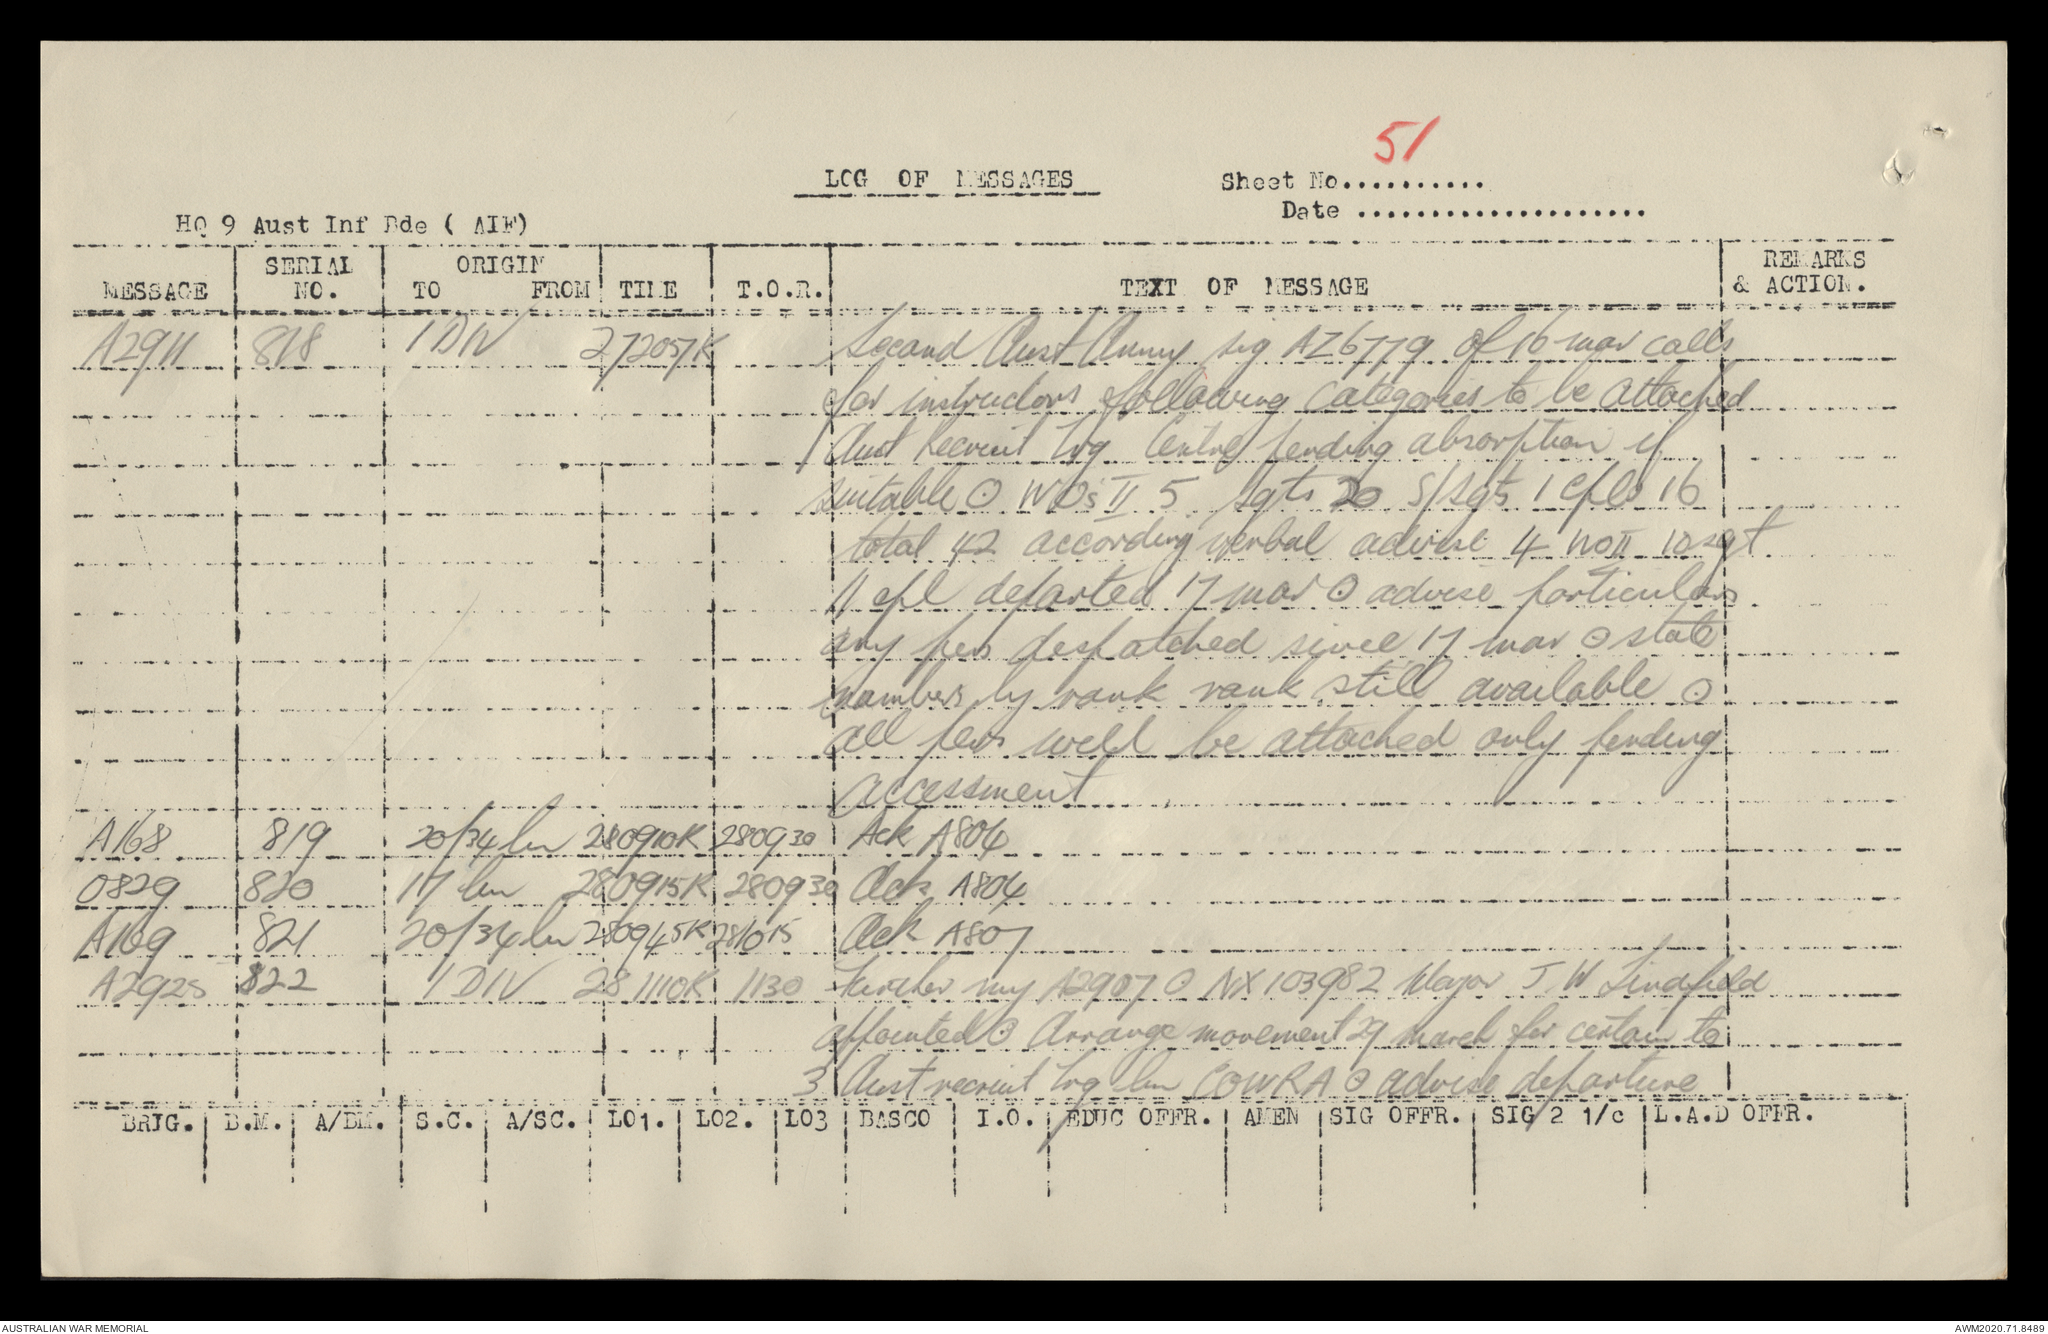 51
LOG OF MESSAGES
Sheet No..........
Date .....................
HQ 9 Aust Inf Bde ( AIF)
MESSAGE SERIAL NO. ORIGIN TO FROM TIME T.O.R. TEXT OF MESSAGE REMARKS & ACTION.
A2911 818 1 DIV 272057K Second Aust Army sig AZ6779 of 16 mar calls
for instructors following categories to be attached
1 Aust Recruit Trg Centre pending absorption if
suitable ⊙ WOs II 5 sgts 20 S/sgts 1 cpls 16
total 42 according verbal advise 4 WOII 10 sgt
11 cpl departed 17 mar ⊙ advise particulars
any pers despatched since 17 mar ⊙ state
numbers by rank rank still available ⊙
all pers will be attached only pending
accessment
A168 819 20/34 bn 280910K 280930 Ack A804
O829 820 17 bn 280915K 280930 Ack A804
A169 821 20/34 bn 280945K 281015 Ack A807
A2925 822 1 DIV 281110K 1130 Further my A2907 ⊙ NX103982 Major J W Lindfield
appointed ⊙ Arrange movement 29 march for certain to
3 Aust recruit trg bn COWRA ⊙ advise departure
BRIG. B.M. A/BM. S.C. A/SC. LO1. LO2. LO3 BASCO I.O. EDUC OFFR. AMEN SIG OFFR. SIG 2 1/c L.A.D OFFR.
AUSTRALIAN WAR MEMORIAL
AWM2020.71.8489